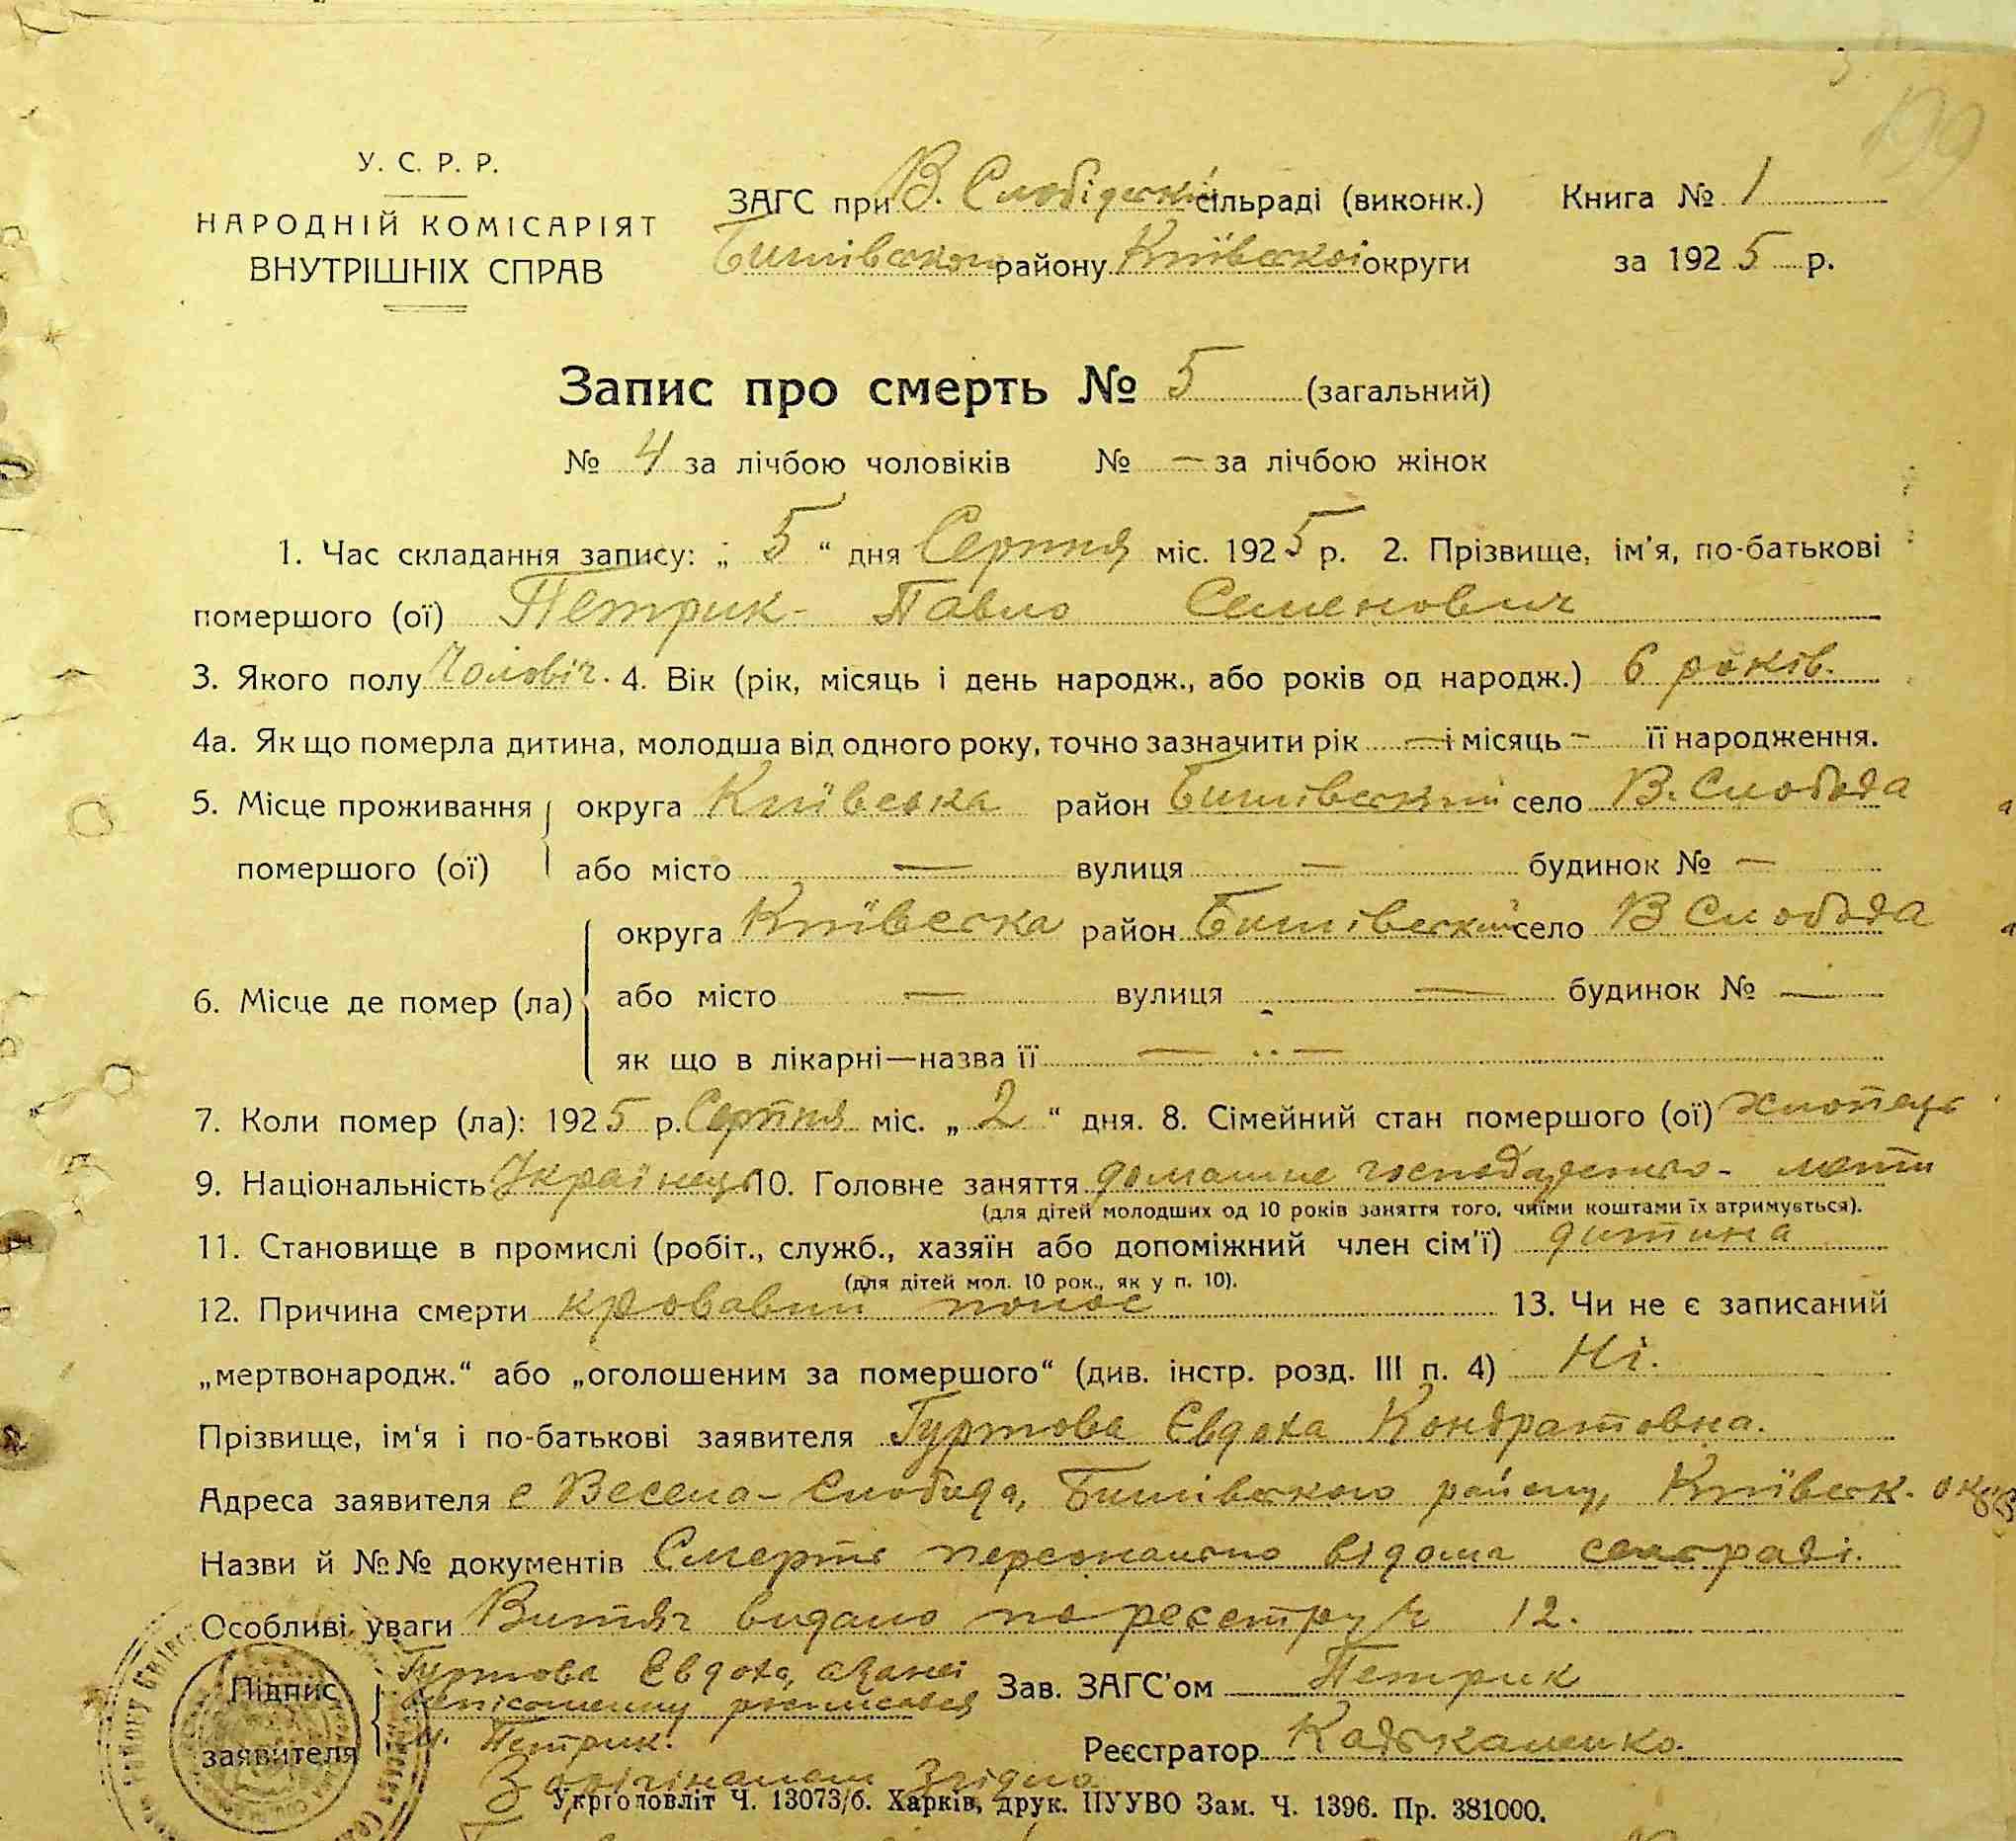 199
У. С. Р. Р.
НАРОДНІЙ КОМІСАРІЯТ
ВНУТРІШНІХ СПРАВ
ЗАГС при В. Слобідській сільраді (виконк.) Книга № 1
Бишівського району Київської округи за 1925 р.
Запис про смерть № 5 (загальний)
№ 4 за лічбою чоловіків № — за лічбою жінок
1. Час складання запису: „ 5 “ дня Серпня міс. 1925 р. 2. Прізвище, ім'я, по-батькові
помершого (ої) Петрик Павло Семенович
3. Якого полу Чоловіч. 4. Вік (рік, місяць і день народж., або років од народж.) 6 років.
4а. Як що померла дитина, молодша від одного року, точно зазначити рік — і місяць — її народження.
5. Місце проживання округа Київська район Бишівський село В. Слобода
помершого (ої) або місто — вулиця — будинок № —
округа Київська район Бишівський село В Слобода
6. Місце де помер (ла) або місто — вулиця — будинок № —
як що в лікарні—назва її — —
7. Коли помер (ла): 1925 р. Серпня міс. „ 2 “ дня. 8. Сімейний стан помершого (ої) хлопець
9. Національність Українець 10. Головне заняття домашне господарство - мати
(для дітей молодших од 10 років заняття того, чиїми коштами їх втримується).
11. Становище в промислі (робіт., служб., хазяїн або допоміжний член сім'ї) дитина
(для дітей мол. 10 рок., як у п. 10).
12. Причина смерти кровавий понос 13. Чи не є записаний
„мертвонародж.“ або „оголошеним за помершого“ (див. інстр. розд. III п. 4) Ні.
Прізвище, ім'я і по-батькові заявителя Гуртова Євдоха Кондратовна.
Адреса заявителя с Весела-Слобода, Бишівського району, Київськ. окр
Назви й №№ документів Смерть персонально відома сельраді.
Особливі уваги Витяг видано по реєстру № 12.
Підпис заявителя Гуртова Євдоха, а за неї
неписьменну росписався
Петрик.
Зав. ЗАГС'ом Петрик
Реєстратор
З оригіналом згідно
Укрголовліт Ч. 13073/б. Харків, друк. ПУУВО Зам. Ч. 1396. Пр. 381000.